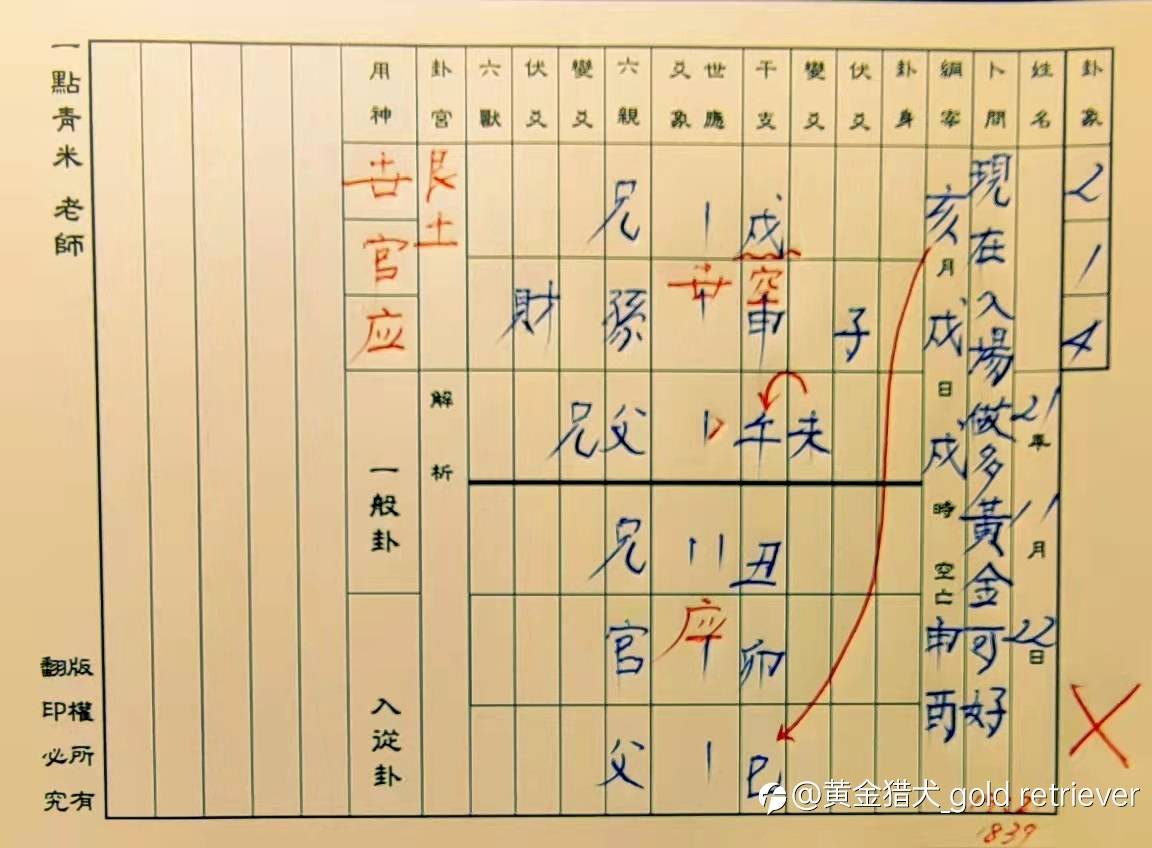 卦象 2 1 4
姓名 21年11月22日
卜問 現在入場做多黃金可好
亥月戌日戌時空亡申酉
卦身
伏爻 子
變爻 未
干支 戌 空 申 午 丑 卯 巳
世應爻象 世 应
六親 兄 孫 父 兄 官 父
變爻 兄
伏爻 財
六獸
卦宮 艮土
解析
用神 世 官 应
一般卦
入從卦
一點青米 老師
版權所有
翻印必究
@黄金猎犬_gold retriever
1839